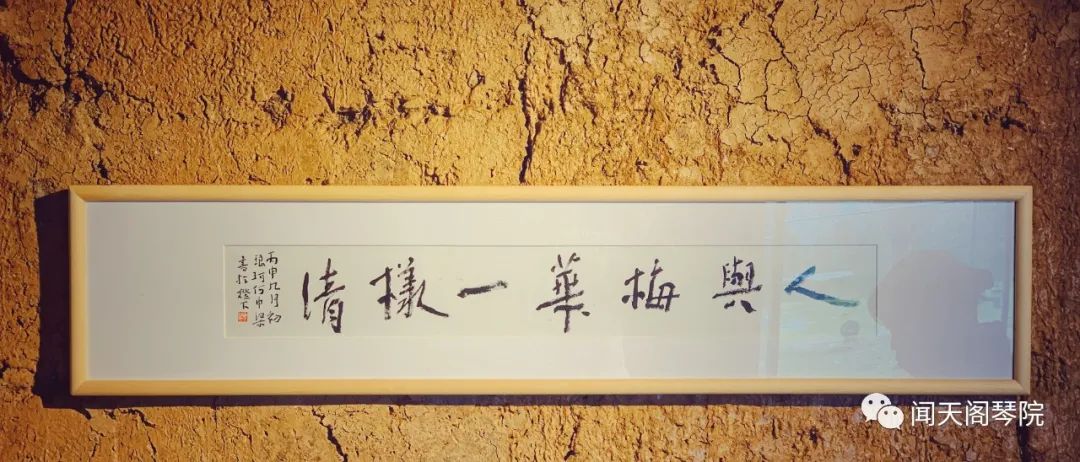 人與梅華一樣清
丙申九月初
書於燈下
闻天阁琴院